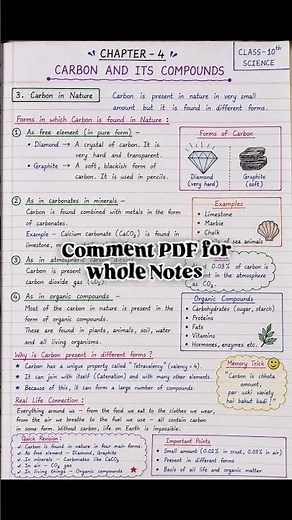 CHAPTER - 4
CARBON AND ITS COMPOUNDS
CLASS-10th
SCIENCE
3. Carbon in Nature
Carbon is present in nature in very small
amount but it is found in different forms.
Forms in which Carbon is found in Nature :
1 As free element (in pure form) -
• Diamond → A crystal of carbon. It is
very hard and transparent.
• Graphite → A soft, blackish form of
carbon. It is used in pencils.
Forms of Carbon
Diamond
(very hard)
Graphite
(soft)
2 As in carbonates in minerals -
Carbon is found combined with metals in the form
of carbonates.
Example - Calcium carbonate (CaCO₃) is found in
limestone,
Examples
• Limestone
• Marble
• Chalk
of sea animals
Comment PDF for
whole Notes
3 As in atmospheric
Carbon is present
carbon dioxide gas (CO₂)
0.03% of carbon is
in the atmosphere
as CO₂
4 As in organic compounds -
Most of the carbon in nature is present in the
form of organic compounds.
These are found in plants, animals, soil, water
and all living organisms.
Organic Compounds
• Carbohydrates (sugar, starch)
• Proteins
• Fats
• Vitamins
• Hormones, enzymes etc.
Why is Carbon present in different forms ?
• Carbon has a unique property called "Tetravalency" (valency = 4).
• It can join with itself (Catenation) and with many other elements.
• Because of this, it can form a large number of compounds.
Memory Trick
"Carbon is chhota
amount,
par uski variety
hai bahut badi!"
Real Life Connection :
Everything around us - from the food we eat to the clothes we wear,
from the air we breathe to the fuel we use - all contain carbon
in some form. Without carbon, life on Earth is impossible.
Quick Revision :
✓ Carbon is found in nature in four main forms.
✓ As free element - Diamond, Graphite
✓ In minerals - Carbonates like CaCO₃
✓ In air - CO₂ gas
✓ In living things - Organic compounds
Important Points
• Small amount (0.02% in crust, 0.03% in air)
• Present in different forms
• Basis of all life and organic matter